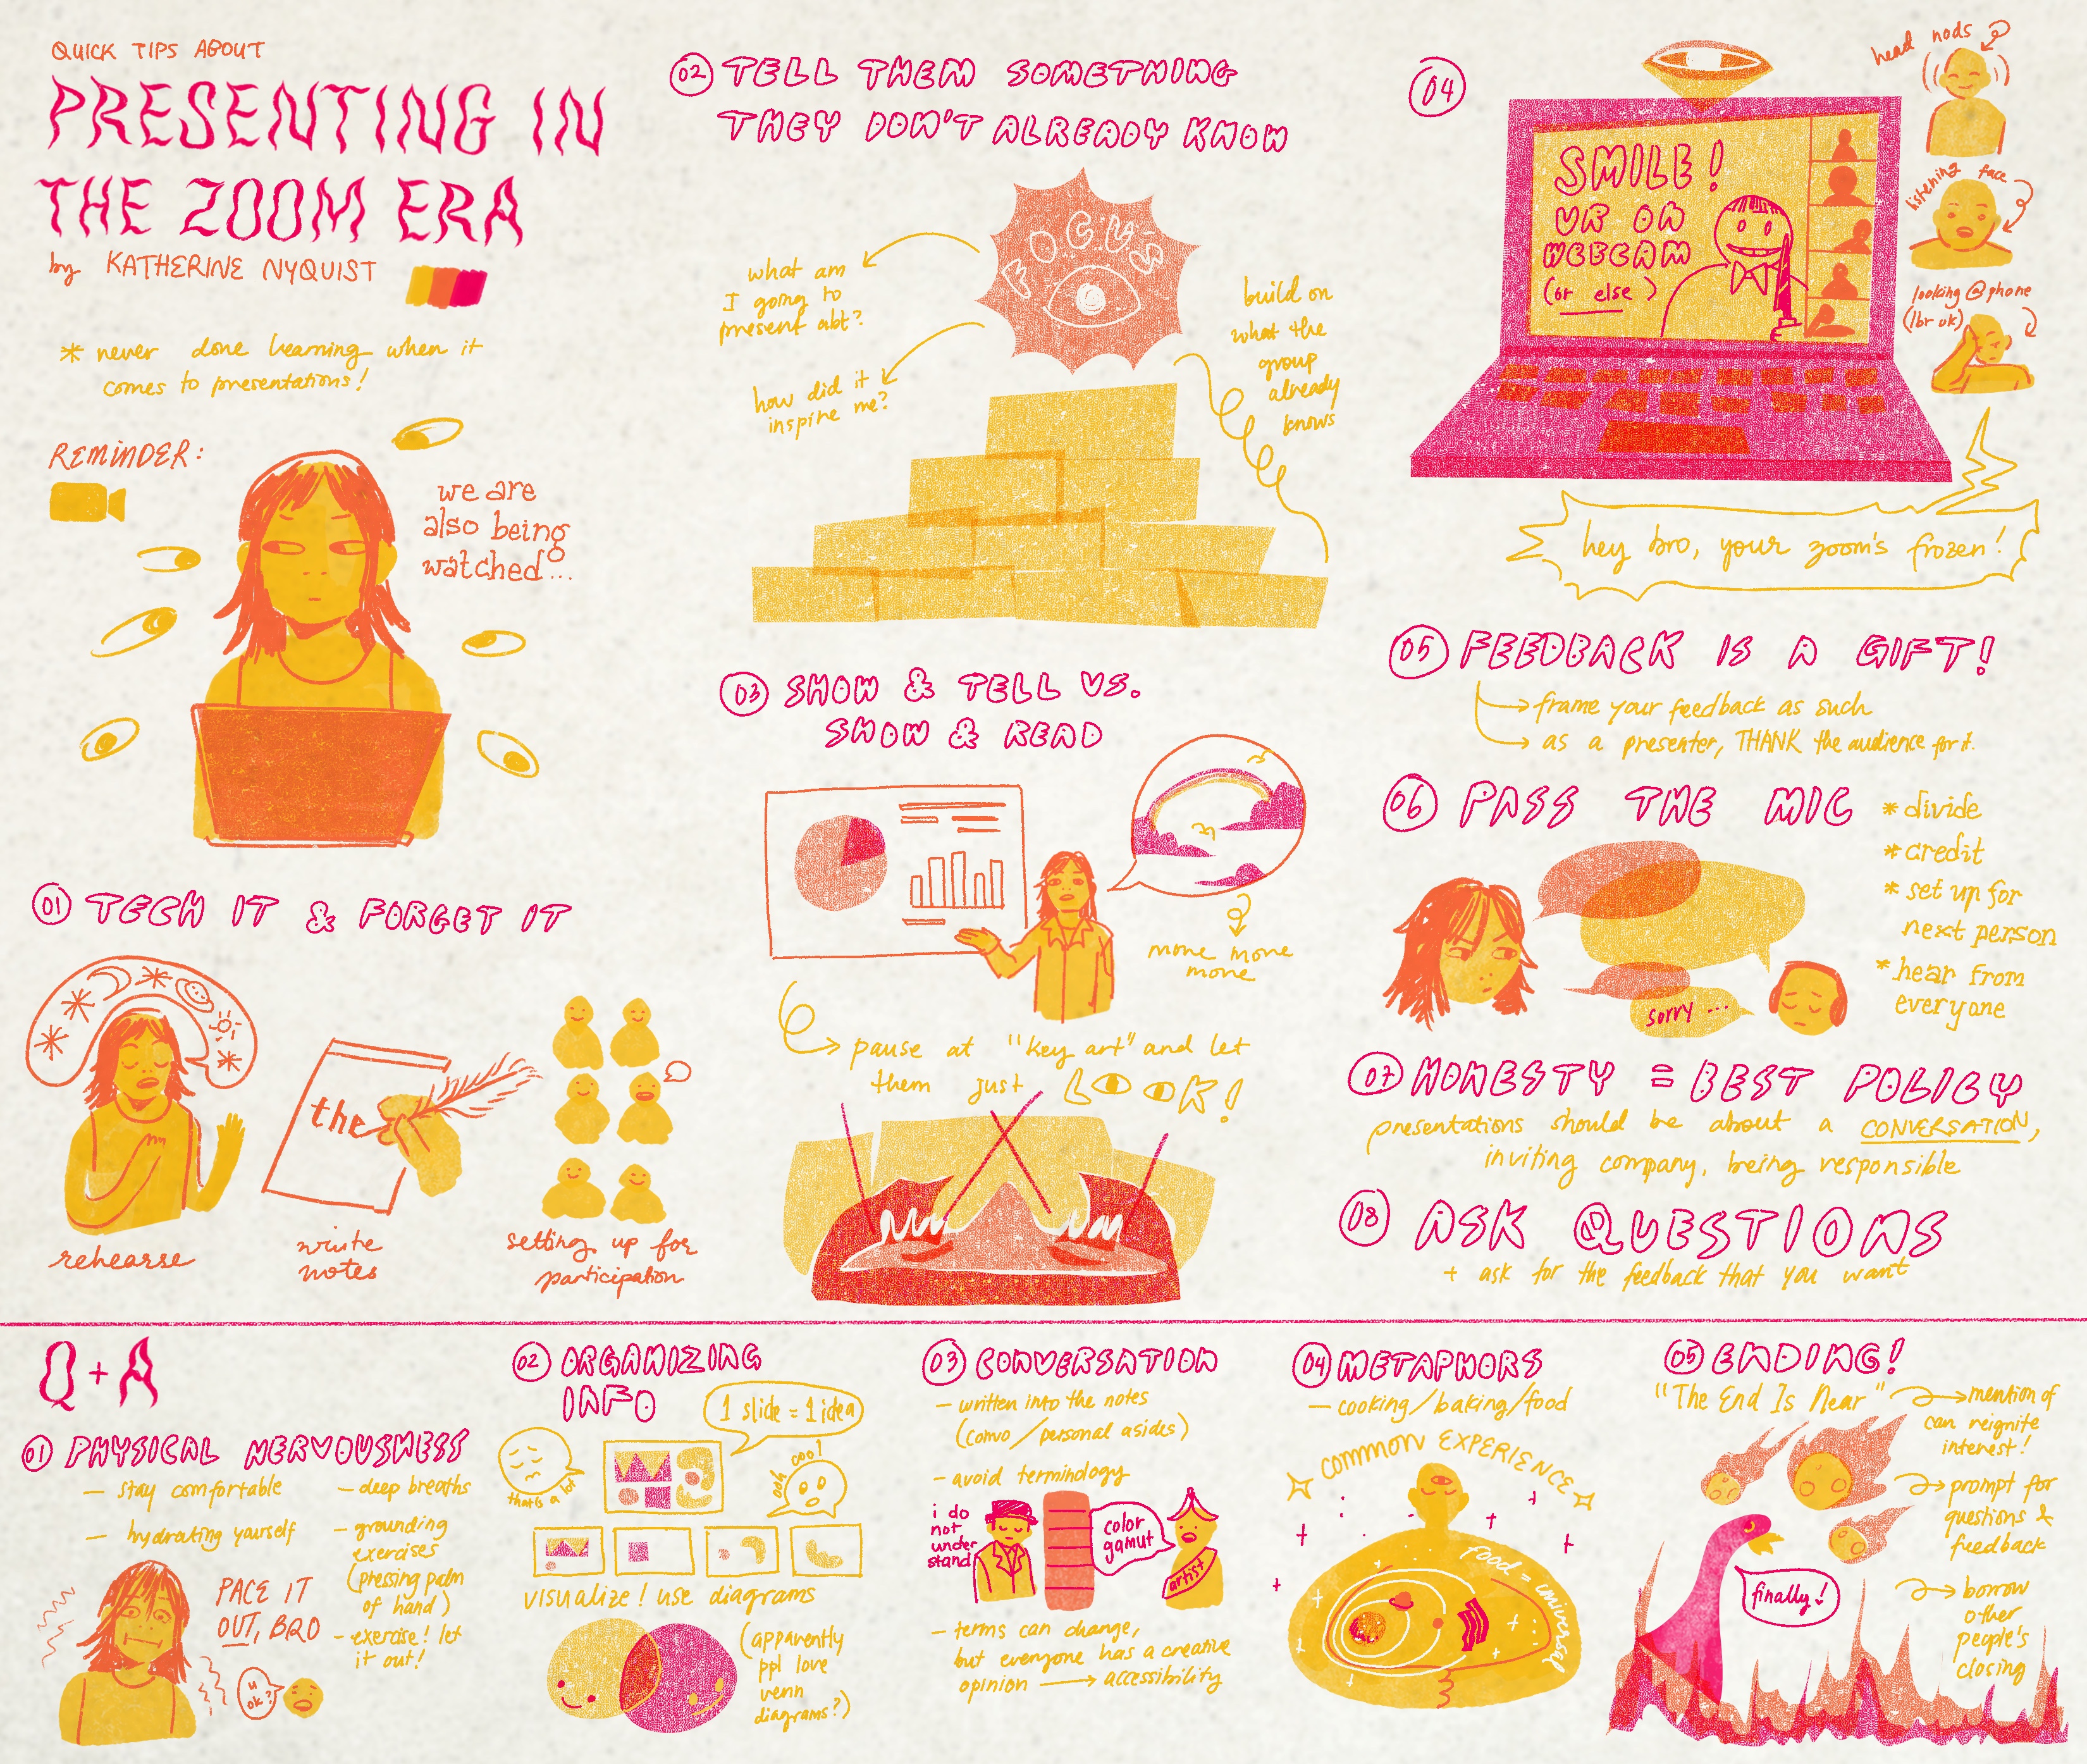 QUICK TIPS ABOUT
PRESENTING IN
THE ZOOM ERA
by KATHERINE NYQUIST
* never done learning when it
comes to presentations!
REMINDER:
we are
also being
watched...
01 TECH IT & FORGET IT
the
rehearse
write
notes
setting up for
participation
02 TELL THEM SOMETHING
THEY DON'T ALREADY KNOW
FOCUS
what am
I going to
present abt?
how did it
inspire me?
build on
what the
group
already
knows
03 SHOW & TELL VS.
SHOW & READ
more more
more
pause at "key art" and let
them just LOOK!
04
SMILE!
UR ON
WEBCAM
(or else)
head nods
listening face
looking @ phone
(lbr uk)
hey bro, your zoom's frozen!
05 FEEDBACK IS A GIFT!
frame your feedback as such
as a presenter, THANK the audience for it.
06 PASS THE MIC
* divide
* credit
* set up for
next person
* hear from
everyone
sorry ...
07 HONESTY = BEST POLICY
presentations should be about a CONVERSATION,
inviting company, being responsible
08 ASK QUESTIONS
+ ask for the feedback that you want
Q + A
01 PHYSICAL NERVOUSNESS
- stay comfortable
- hydrating yourself
- deep breaths
- grounding
exercises
(pressing palm
of hand)
- exercise! let
it out!
PACE IT
OUT, BRO
u
ok?
02 ORGANIZING
INFO
1 slide = 1 idea
that's a lot
ooh cool
visualize! use diagrams
(apparently
ppl love
venn
diagrams?)
03 CONVERSATION
- written into the notes
(convo/personal asides)
- avoid terminology
i do
not
under
stand
color
gamut
artist
- terms can change,
but everyone has a creative
opinion → accessibility
04 METAPHORS
- cooking/baking/food
COMMON EXPERIENCE
food = universal
05 ENDING!
"The End Is Near"
mention of
can reignite
interest!
prompt for
questions &
feedback
borrow
other
people's
closing
finally!